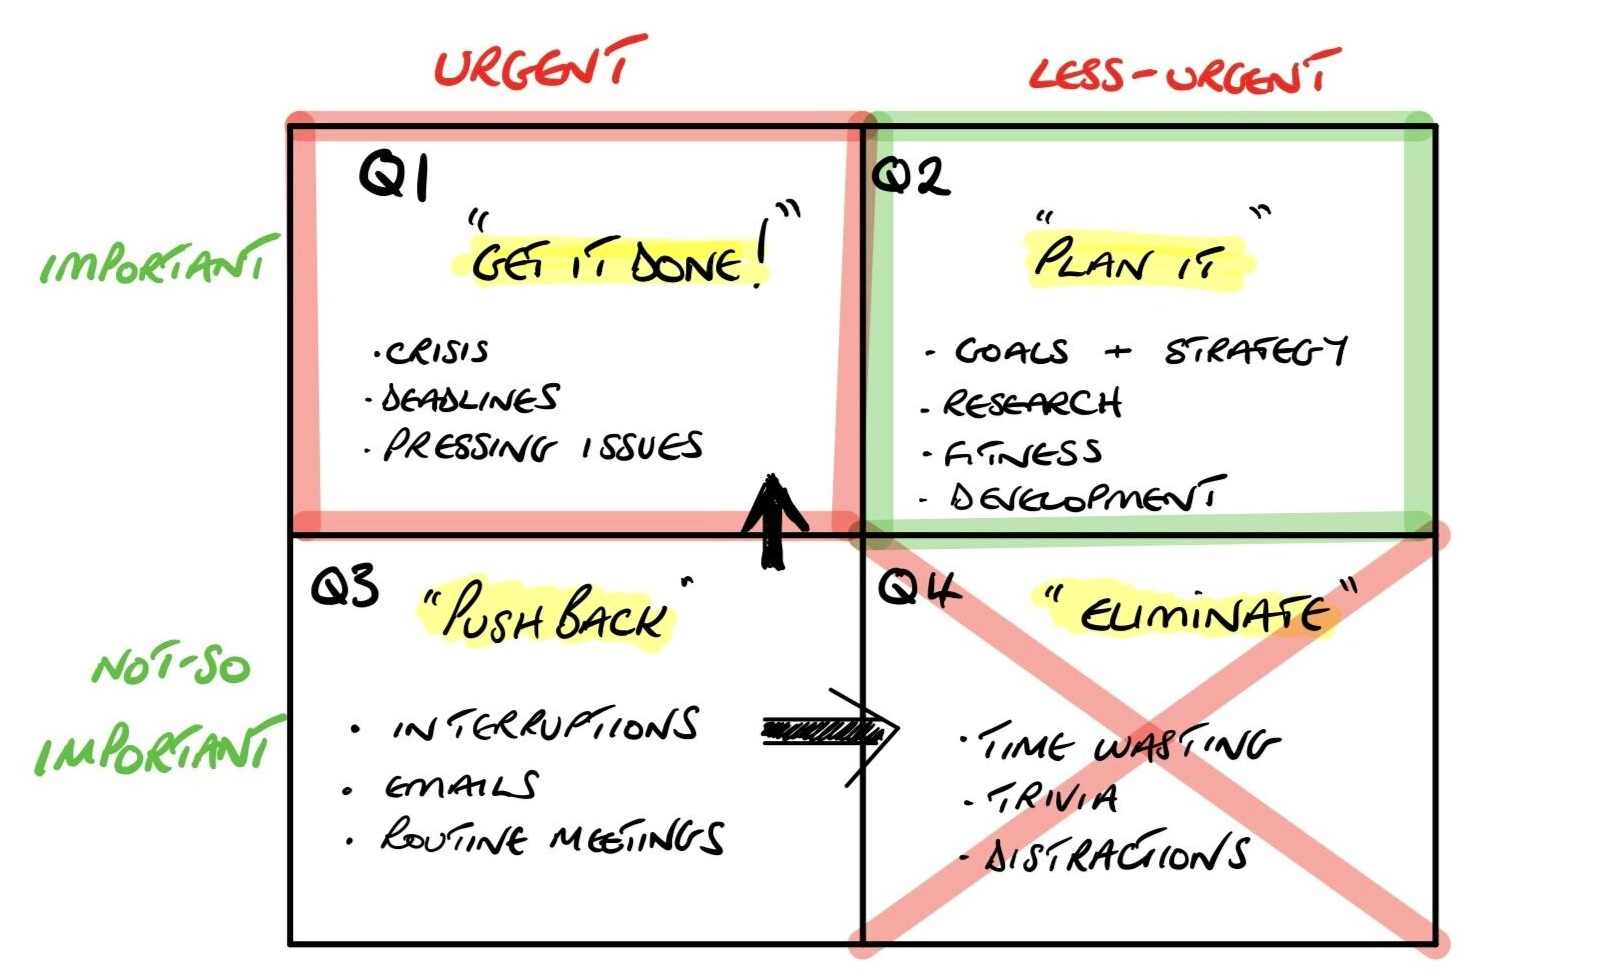 URGENT
LESS-URGENT
IMPORTANT
Q1
"GET IT DONE!"
• CRISIS
• DEADLINES
• PRESSING ISSUES
Q2
"PLAN IT"
- GOALS + STRATEGY
- RESEARCH
- FITNESS
- DEVELOPMENT
NOT-SO
IMPORTANT
Q3
"PUSH BACK"
• INTERRUPTIONS
• EMAILS
• ROUTINE MEETINGS
Q4
"ELIMINATE"
• TIME WASTING
- TRIVIA
- DISTRACTIONS